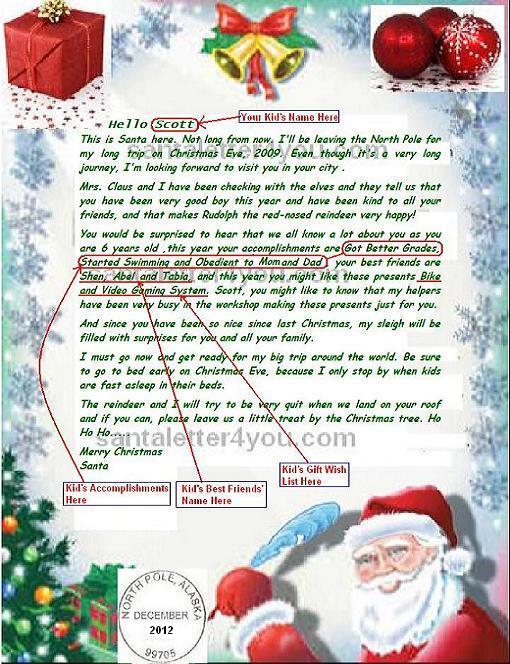 Hello Scott
Your Kid's Name Here
This is Santa here. Not long from now, I'll be leaving the North Pole for
my long trip on Christmas Eve, 2009. Even though it's a very long
journey, I'm looking forward to visit you in your city .
santaletter4you.com
Mrs. Claus and I have been checking with the elves and they tell us that
you have been very good boy this year and have been kind to all your
friends, and that makes Rudolph the red-nosed reindeer very happy!
You would be surprised to hear that we all know a lot about you as you
are 6 years old ,this year your accomplishments are Got Better Grades,
Started Swimming and Obedient to Mom and Dad your best friends are
Shen, Abel and Tabla, and this year you might like these presents Bike
santaletter4you.com
and Video Gaming System. Scott, you might like to know that my helpers
have been very busy in the workshop making these presents just for you.
And since you have been so nice since last Christmas, my sleigh will be
filled with surprises for you and all your family.
I must go now and get ready for my big trip around the world. Be sure
to go to bed early on Christmas Eve, because I only stop by when kids
are fast asleep in their beds.
The reindeer and I will try to be very quit when we land on your roof
and if you can, please leave us a little treat by the Christmas tree. Ho
Ho Ho....
santaletter4you.com
Merry Christmas
Santa
Kid's Gift Wish
List Here
Kid's Accomplishments
Here
Kid's Best Friends'
Name Here
NORTH POLE, ALASKA
DECEMBER
2012
99705